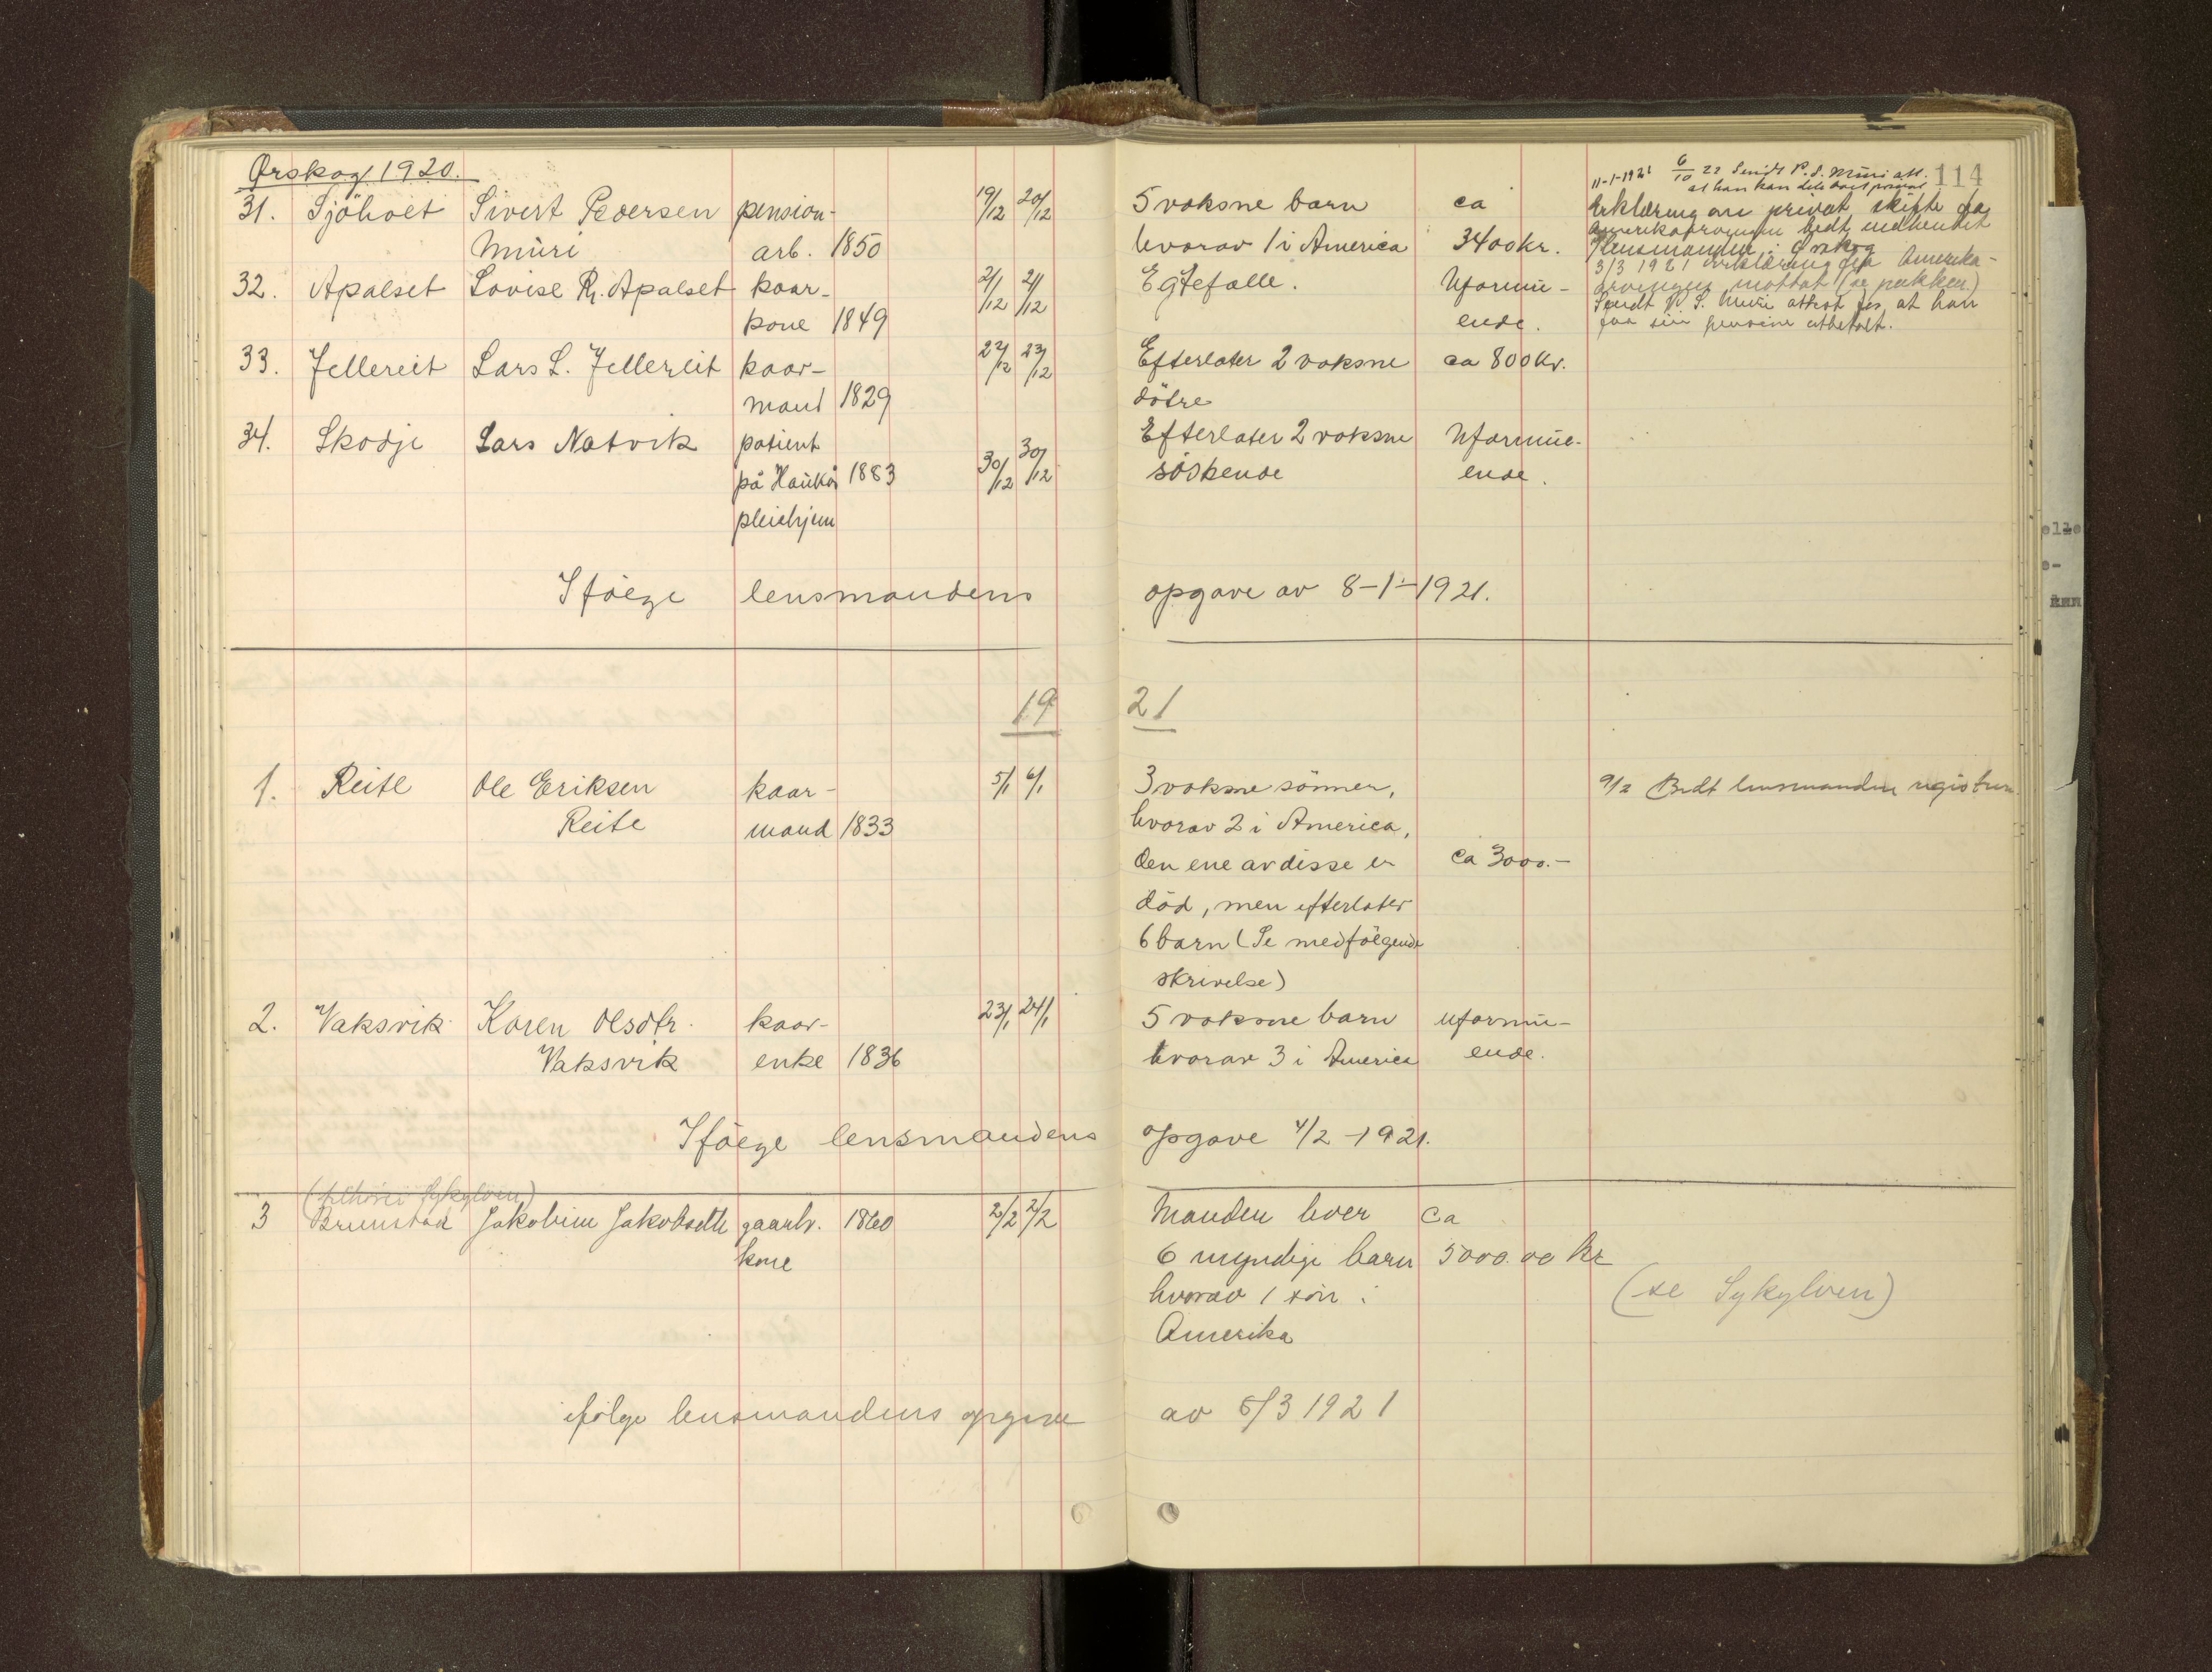 Ørskog 1920.
114
31. Sjöholt Sivert Pedersen pension- 19/12 20/12 5 voksne barn ca
Muri arb. 1850 hvorav 1 i America 3400 kr.
11-1-1921 6/10 22 Sendt P. S. Muri att.
at han kan
Erklæring om privat skifte fra
bedt indhentet
Lensmanden i Ørskog
3/3 1921 Erklæring fra Amerika-
arvingen mottat (se pakken)
Sendt P. S. Muri attest for at han
faa sin pension utbetalt.
32. Apalset Lovise R. Apalset kaar- 21/12 21/12 Egtefælle. Uformu-
kone 1849 ende.
33. Fellereit Lars L. Fellereit kaar- 22/12 23/12 Efterlater 2 voksne ca 800 kr.
mand 1829 döttre
34. Skodje Lars Natvik patient Efterlater 2 voksne Uformu-
på Haukås 1883 30/12 30/12 söskende ende.
pleiehjem
Ifölge lensmandens opgave av 8-1-1921.
19 21
1. Reite Ole Eriksen kaar- 5/1 6/1 3 voksne sönner, 9/2 Bedt lensmanden registrere
Reite mand 1833 hvorav 2 i America,
den ene av disse er ca 3000.-
död, men efterlater
6 barn (Se medfölgende
skrivelse)
2. Vaksvik Karen Olsdtr. kaar- 23/1 24/1 5 voksne barn uformu-
Vaksvik enke 1836 hvorav 3 i America ende.
Ifölge lensmandens opgave 4/2 -1921.
(tilhörer Sykylven)
3 Brunstad Jakobine Jakobsdtr gaarbr. 1860 2/2 2/2 Manden lever ca
kone 6 myndige barn 5000.00 kr
hvorav 1 sön i (se Sykylven)
Amerika
ifölge lensmandens opgave av 5/3 1921